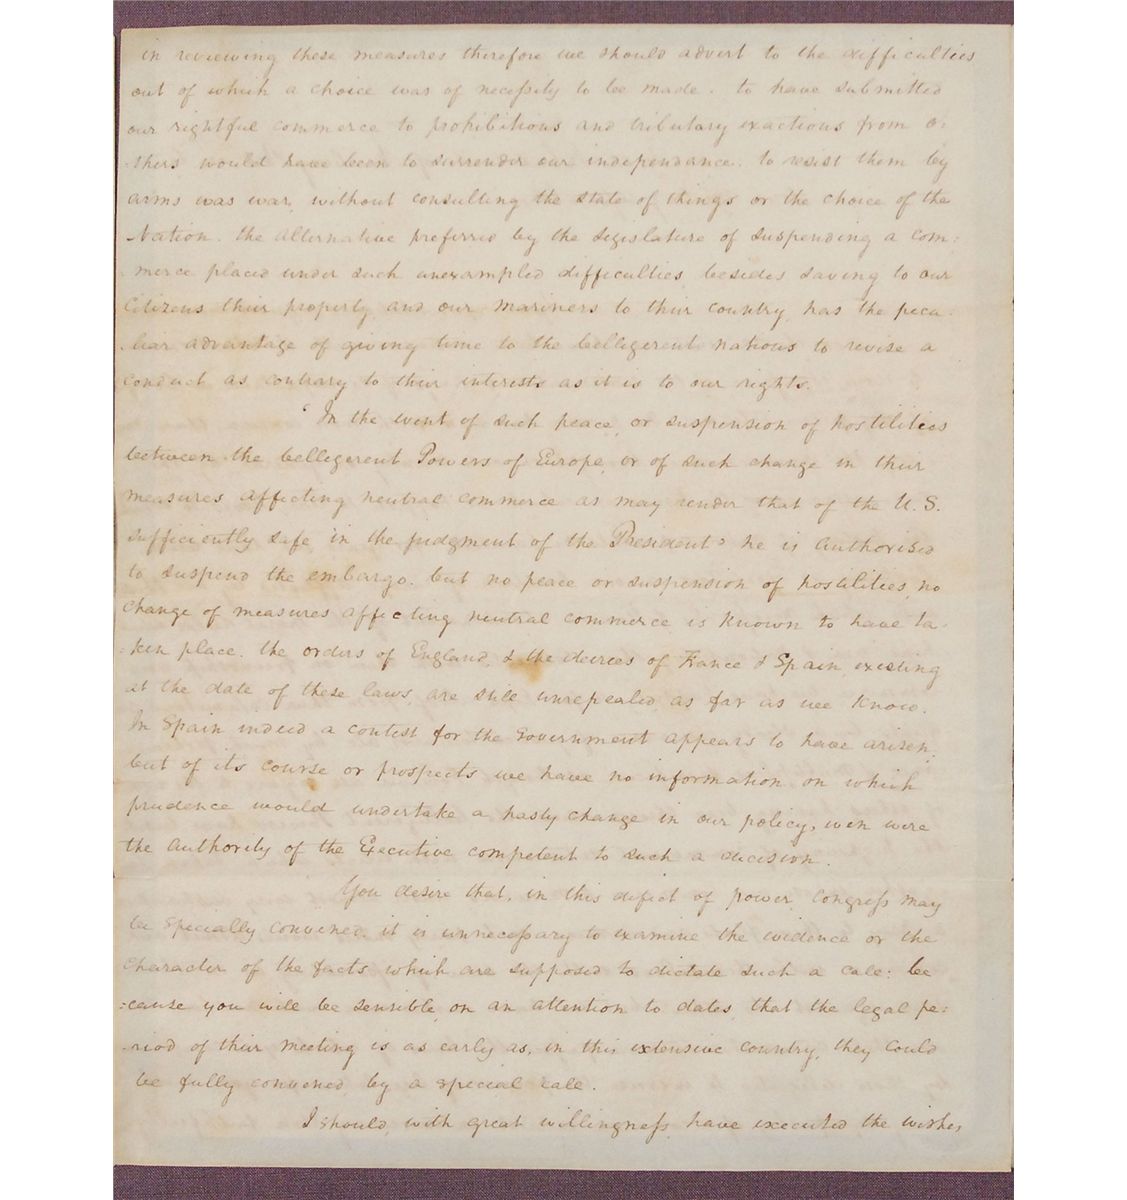 in reviewing these measures therefore we should advert to the difficulties
out of which a choice was of necessity to be made. to have submitted
our rightful commerce to prohibitions and tributary exactions from o-
-thers would have been to surrender our independance. to resist them by
arms was war, without consulting the state of things or the choice of the
Nation. the alternative preferred by the Legislature of suspending a com:
merce placed under such unexampled difficulties, besides saving to our
Citizens their property and our mariners to their country, has the pecu:
-liar advantage of giving time to the belligerent nations to revise a
conduct as contrary to their interests as it is to our rights.
'In the event of such peace, or suspension of hostilities
between the belligerent Powers of Europe, or of such change in their
measures affecting neutral commerce as may render that of the U.S.
sufficiently safe in the judgment of the President' he is authorised
to suspend the embargo. but no peace or suspension of hostilities, no
change of measures affecting neutral commerce is known to have ta-
:ken place. the orders of England, & the decrees of France & Spain, existing
at the date of these laws, are still unrepealed as far as we know.
In Spain indeed a contest for the Government appears to have arisen,
but of its course or prospects we have no information on which
prudence would undertake a hasty change in our policy, even were
the authority of the Executive competent to such a decision.
You desire that, in this defect of power, Congress may
be specially convened. it is unnecessary to examine the evidence or the
character of the facts which are supposed to dictate such a call: be
:cause you will be sensible, on an attention to dates, that the legal pe:
-riod of their meeting is as early as, in this extensive country, they could
be fully convened by a special call.
I should, with great willingness, have executed the wishes